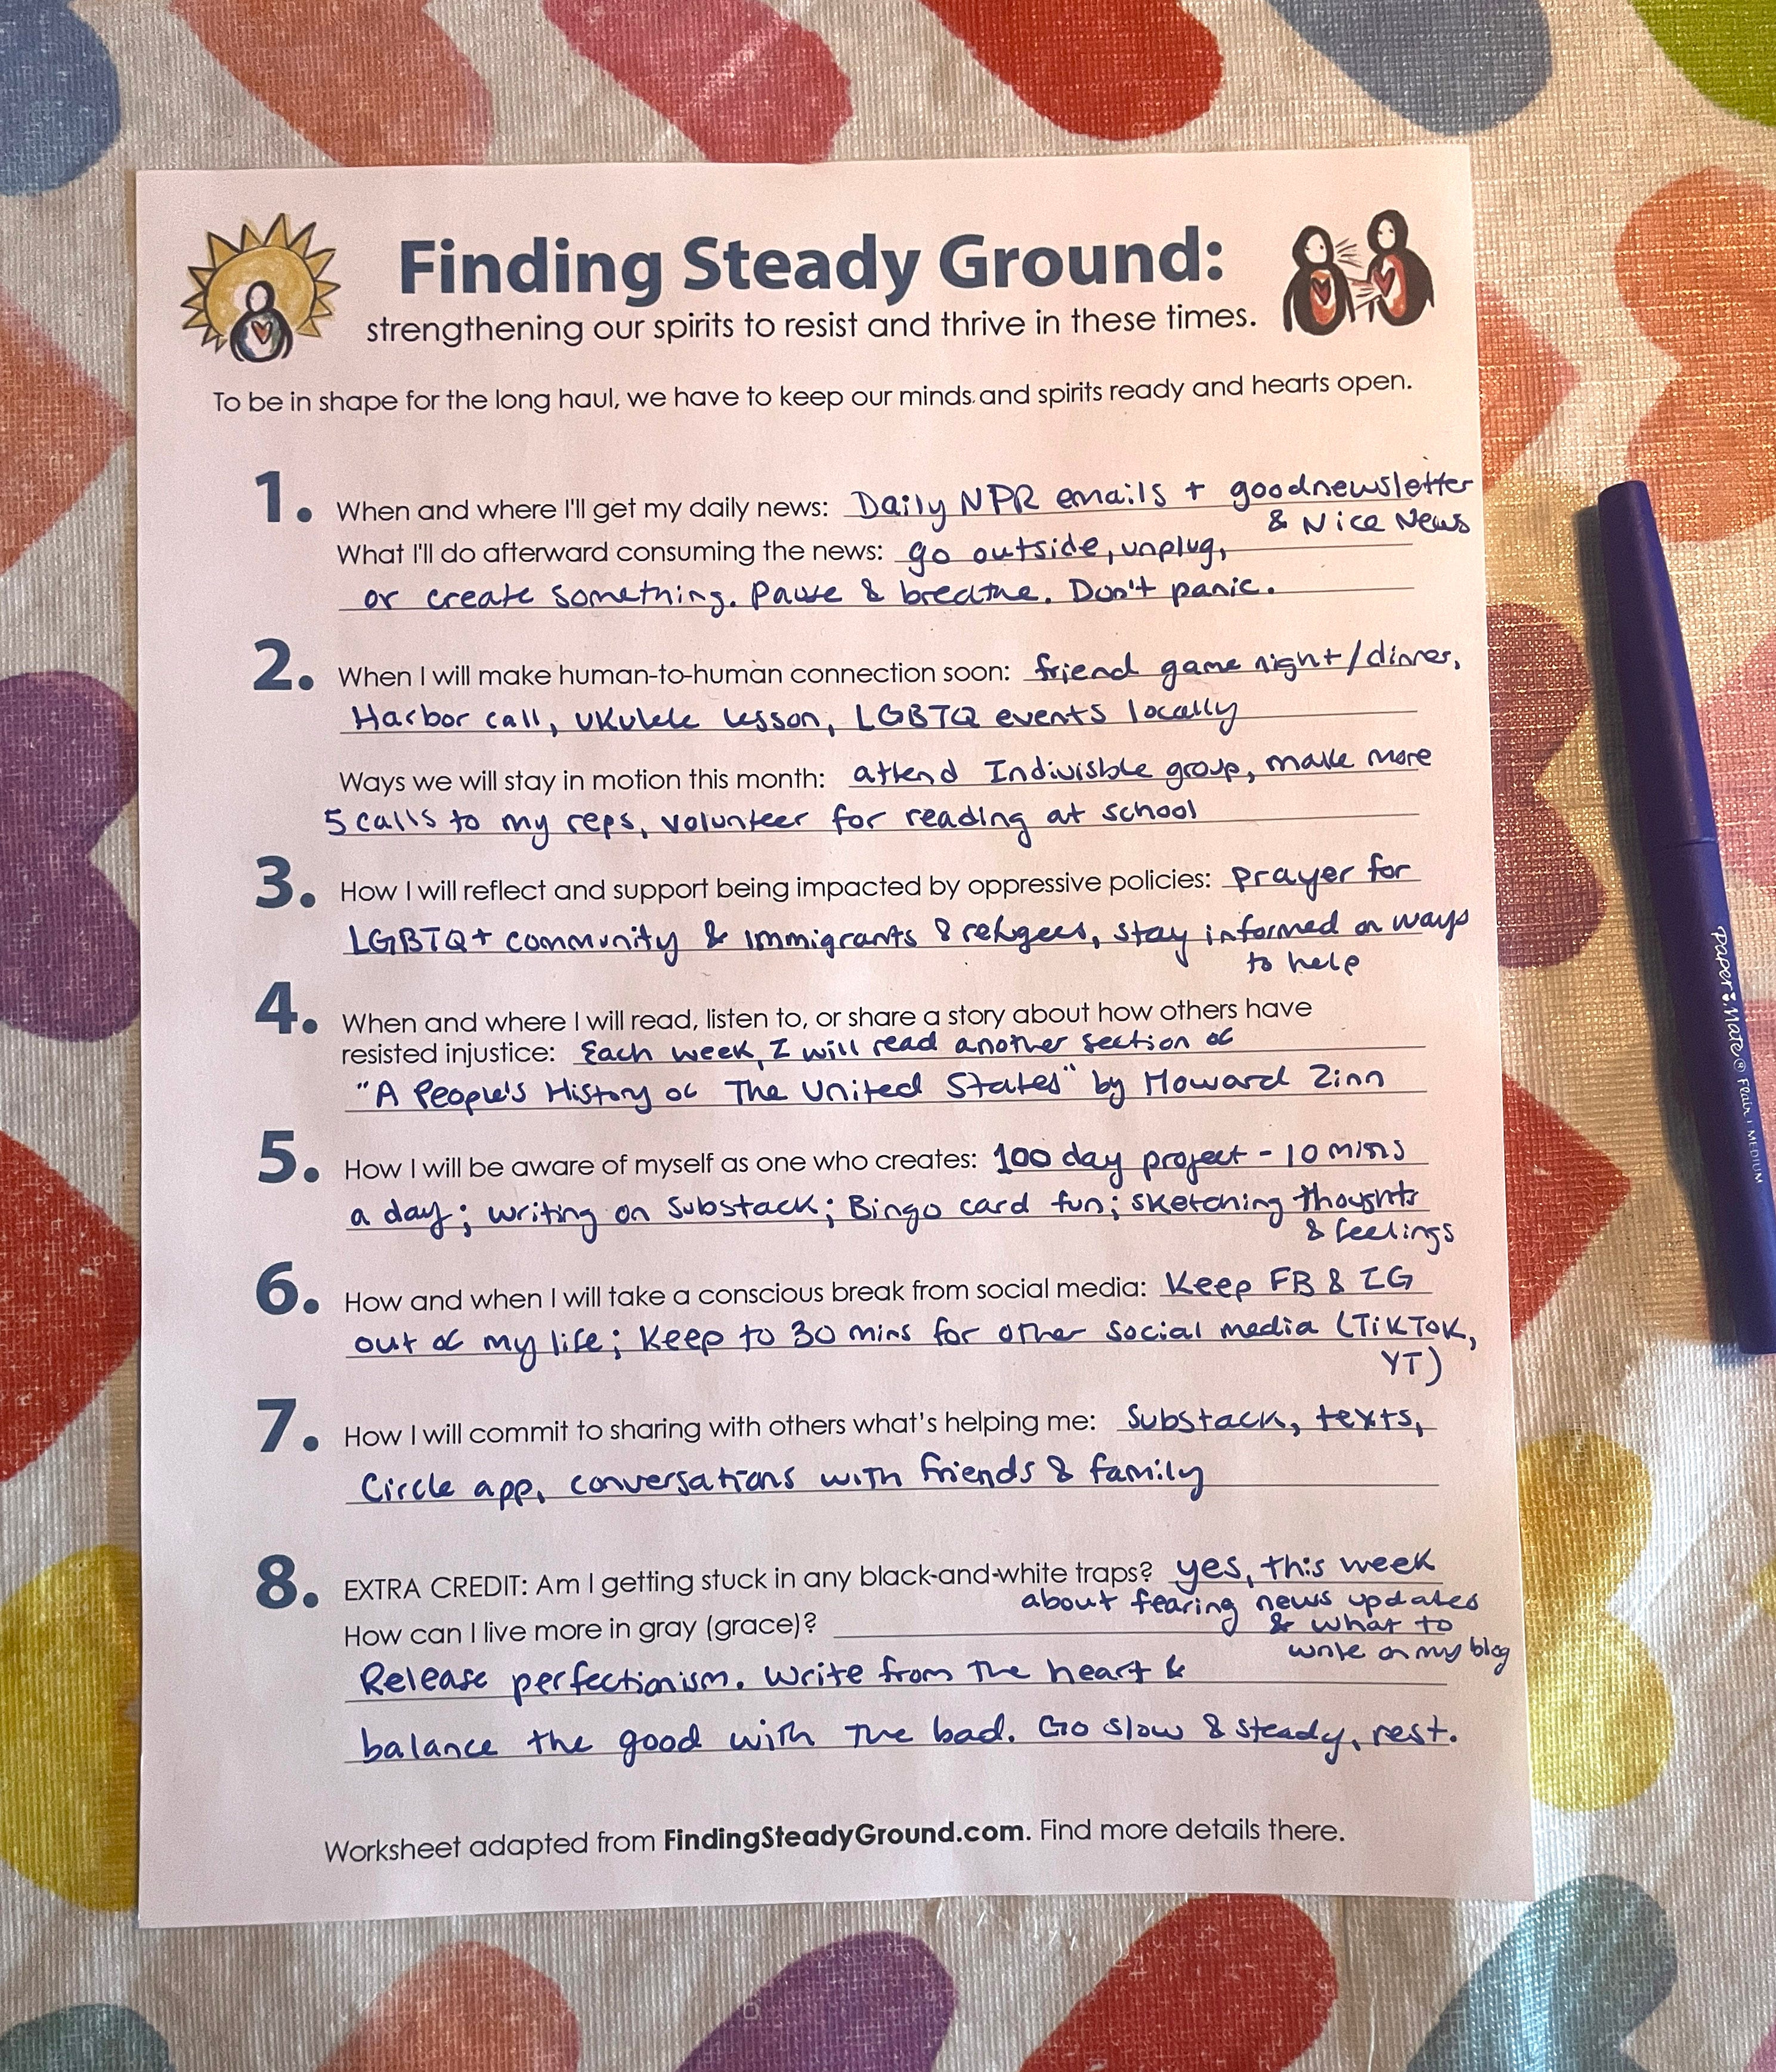 Finding Steady Ground:
strengthening our spirits to resist and thrive in these times.
To be in shape for the long haul, we have to keep our minds and spirits ready and hearts open.
1. When and where I'll get my daily news: Daily NPR emails + goodnewsletter
& Nice News
What I'll do afterward consuming the news: go outside, unplug,
or create something. Pause & breathe. Don't panic.
2. When I will make human-to-human connection soon: friend game night/dinner,
Harbor call, ukulele lesson, LGBTQ events locally
Ways we will stay in motion this month: attend Indivisible group, make more
5 calls to my reps, volunteer for reading at school
3. How I will reflect and support being impacted by oppressive policies: prayer for
LGBTQ+ community & immigrants & refugees, stay informed on ways
to help
4. When and where I will read, listen to, or share a story about how others have
resisted injustice: Each week, I will read another section of
"A People's History of The United States" by Howard Zinn
5. How I will be aware of myself as one who creates: 100 day project - 10 mins
a day; writing on Substack; Bingo card fun; sketching thoughts
& feelings
6. How and when I will take a conscious break from social media: Keep FB & IG
out of my life; Keep to 30 mins for other social media (TikTok,
YT)
7. How I will commit to sharing with others what's helping me: Substack, texts,
Circle app, conversations with friends & family
8. EXTRA CREDIT: Am I getting stuck in any black-and-white traps? yes, this week
about fearing news updates
How can I live more in gray (grace)? & what to
write on my blog
Release perfectionism. Write from the heart &
balance the good with the bad. Go slow & steady, rest.
Worksheet adapted from FindingSteadyGround.com. Find more details there.
Paper Mate® Flair MEDIUM